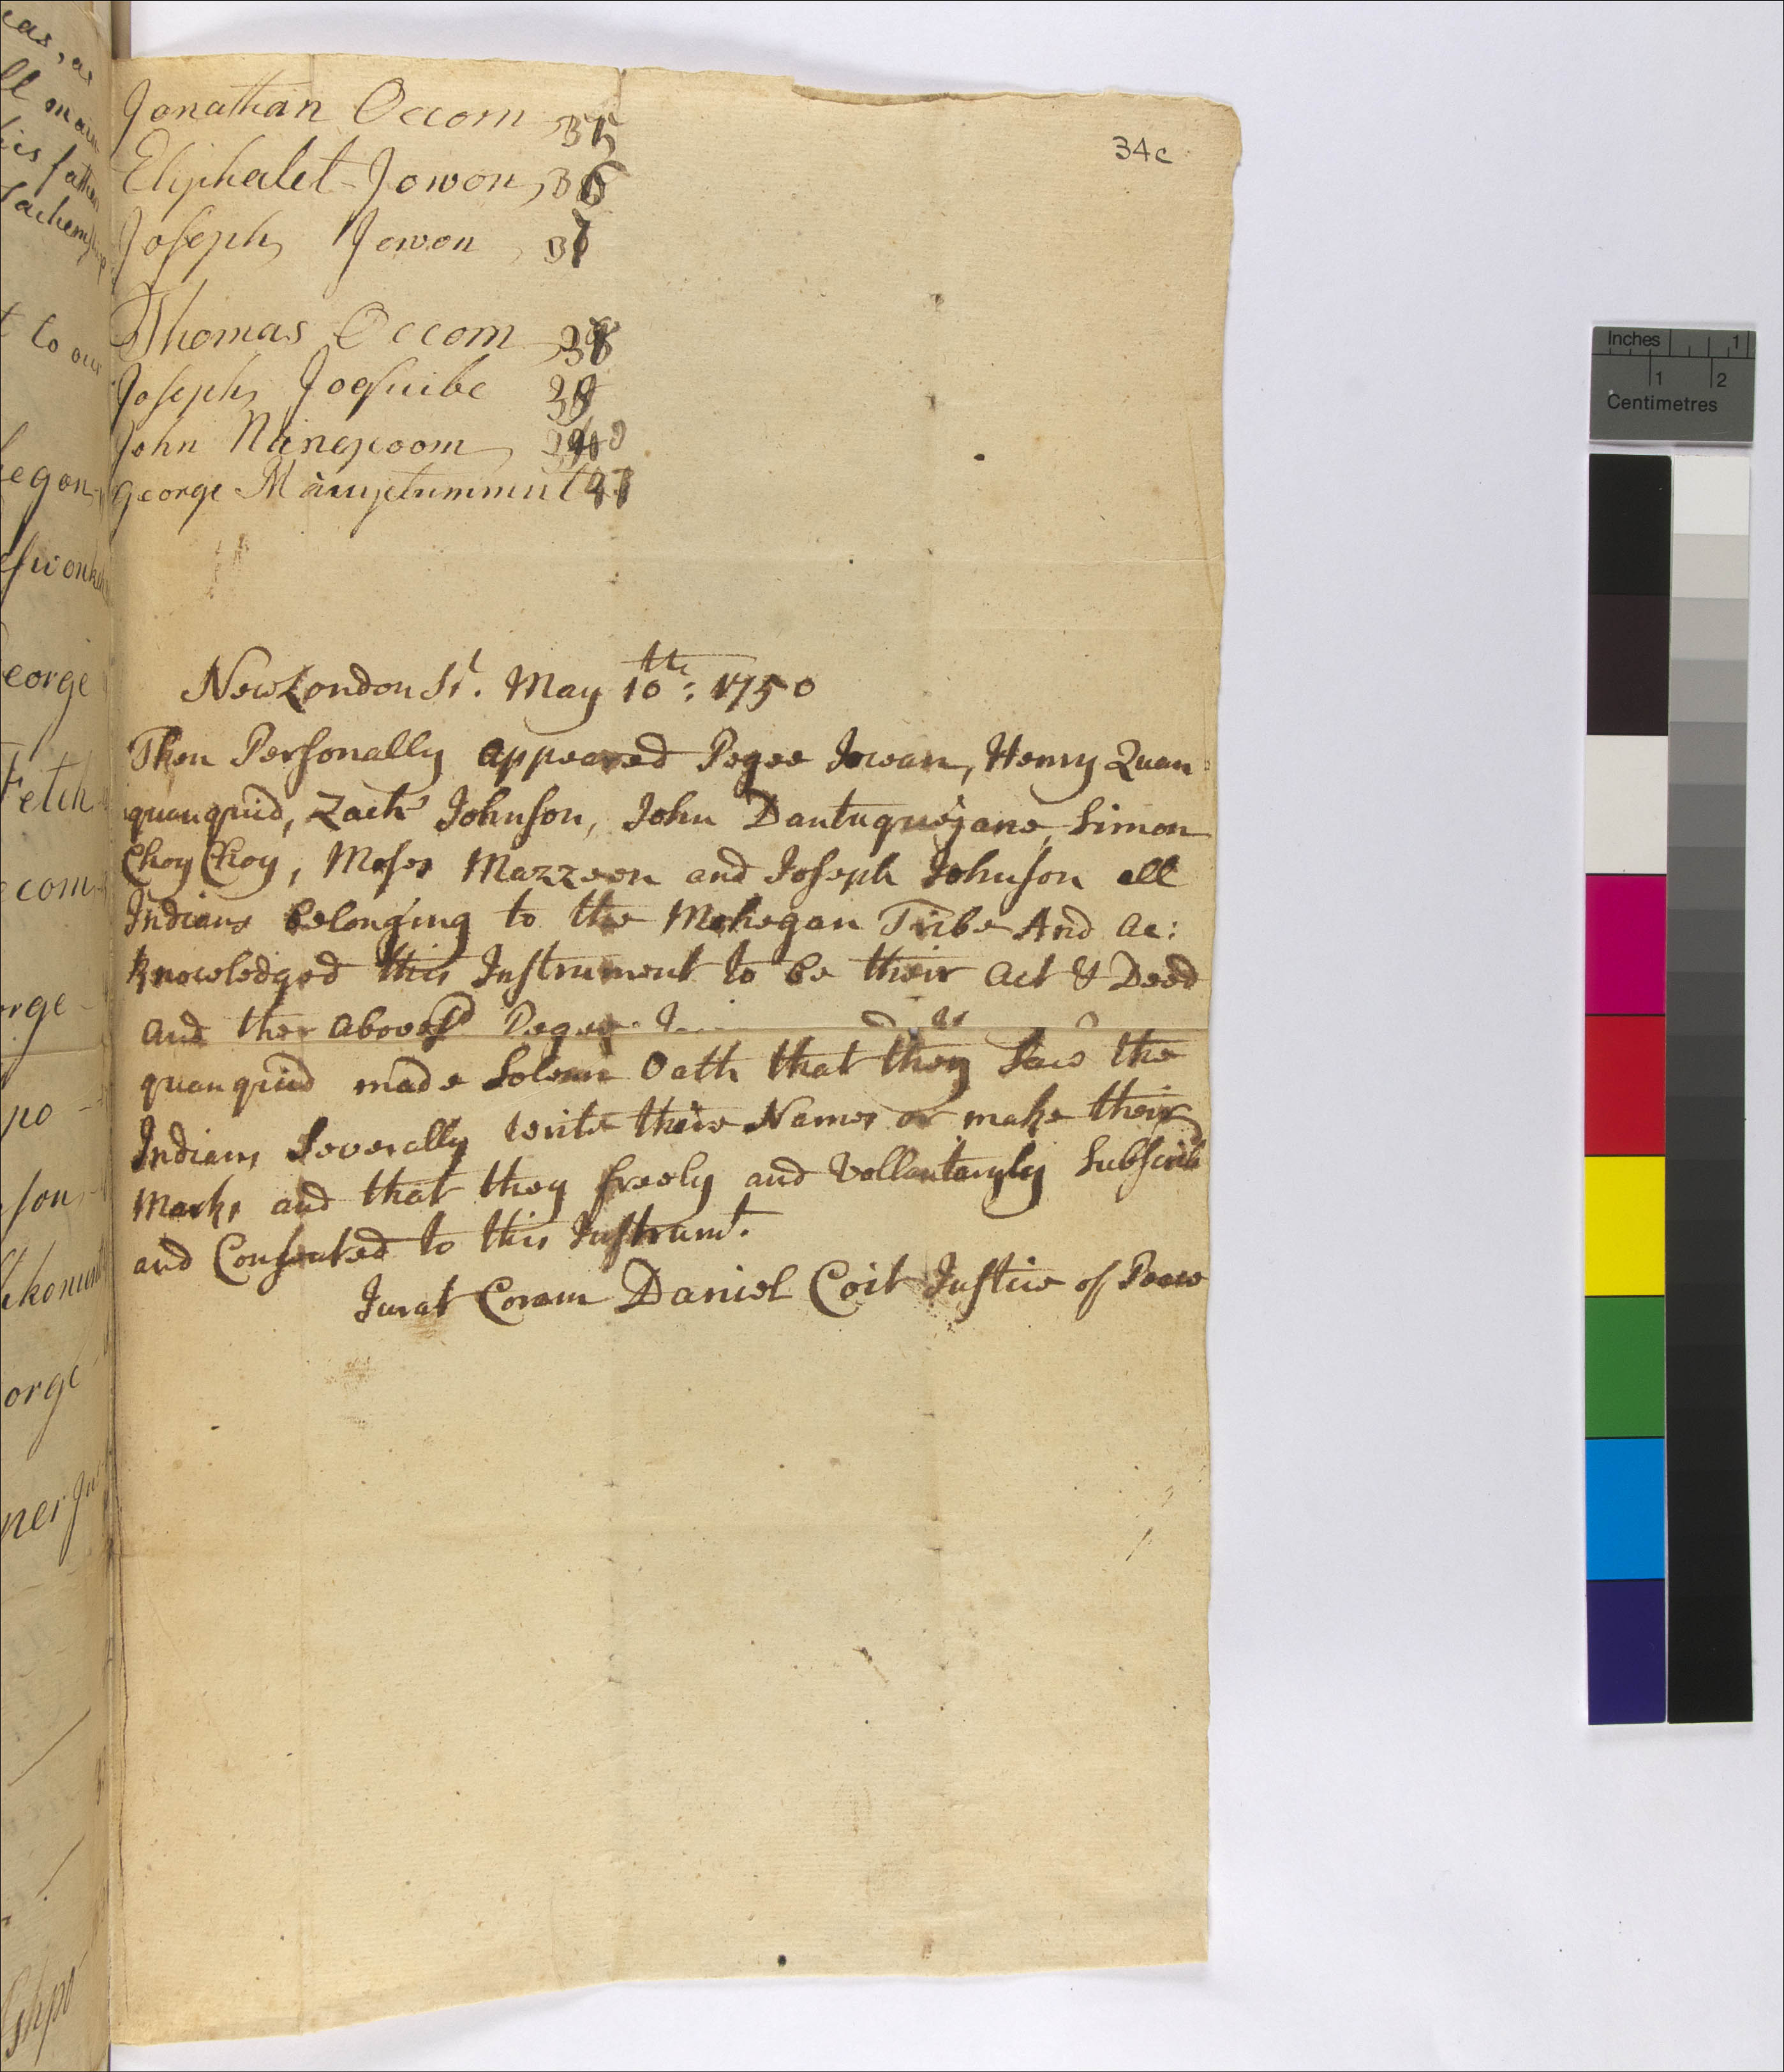 34c
Jonathan Occom 35
Eliphalet Jowon, 36
Joseph Jowon 37
Thomas Occom 38
Joseph Joquibe 39
John Nanepoom 40
George Mauyetummut 41
New London Ss. May 10th: 1750
Then Personally appeared Pegee Jowan, Henry Quan=
quanquid, Zach Johnson, John Dantuquejane, Simon
Choy Choy, Moses Mazzeen and Joseph Johnson all
Indians belonging to the Mohegan Tribe And ac:
knowledged this Instrument to be their act & Deed
and the aboves.d Pegee
quanquid made Solemn Oath that they Saw the
Indians Severally write their Names or make their
Marks and that they freely and Vollantaryly Subscrib
and Consented to this Instrumt.
Jurat Coram Daniel Coit Justice of Peace
Inches 1
1 2
Centimetres
eorge
Fetch